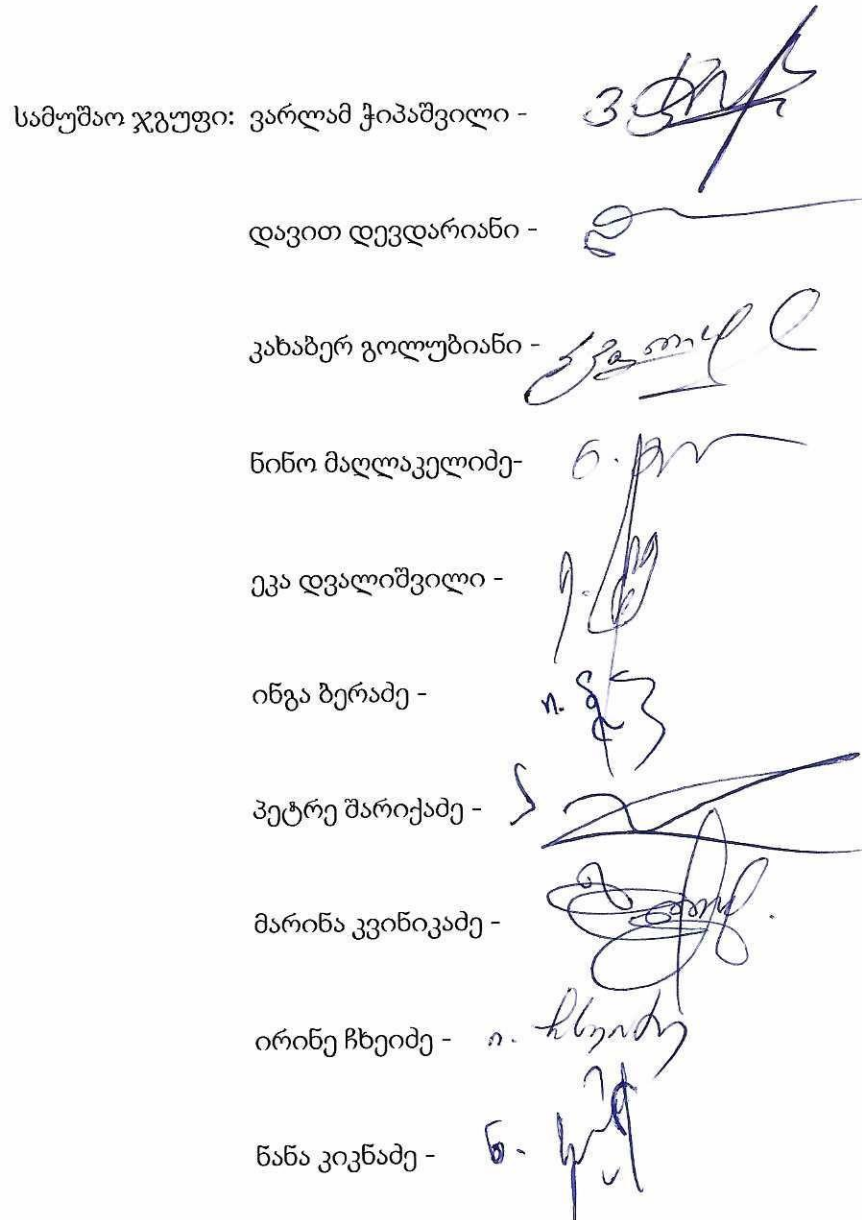 სამუშაო ჯგუფი: ვარლამ ჭიპაშვილი -
დავით დევდარიანი -
კახაბერ გოლუბიანი -
ნინო მაღლაკელიძე-
ეკა დვალიშვილი -
ინგა ბერაძე -
პეტრე შარიქაძე -
მარინა კვინიკაძე -
ირინე ჩხეიძე - ი. ჩხეიძე
ნანა კიკნაძე -